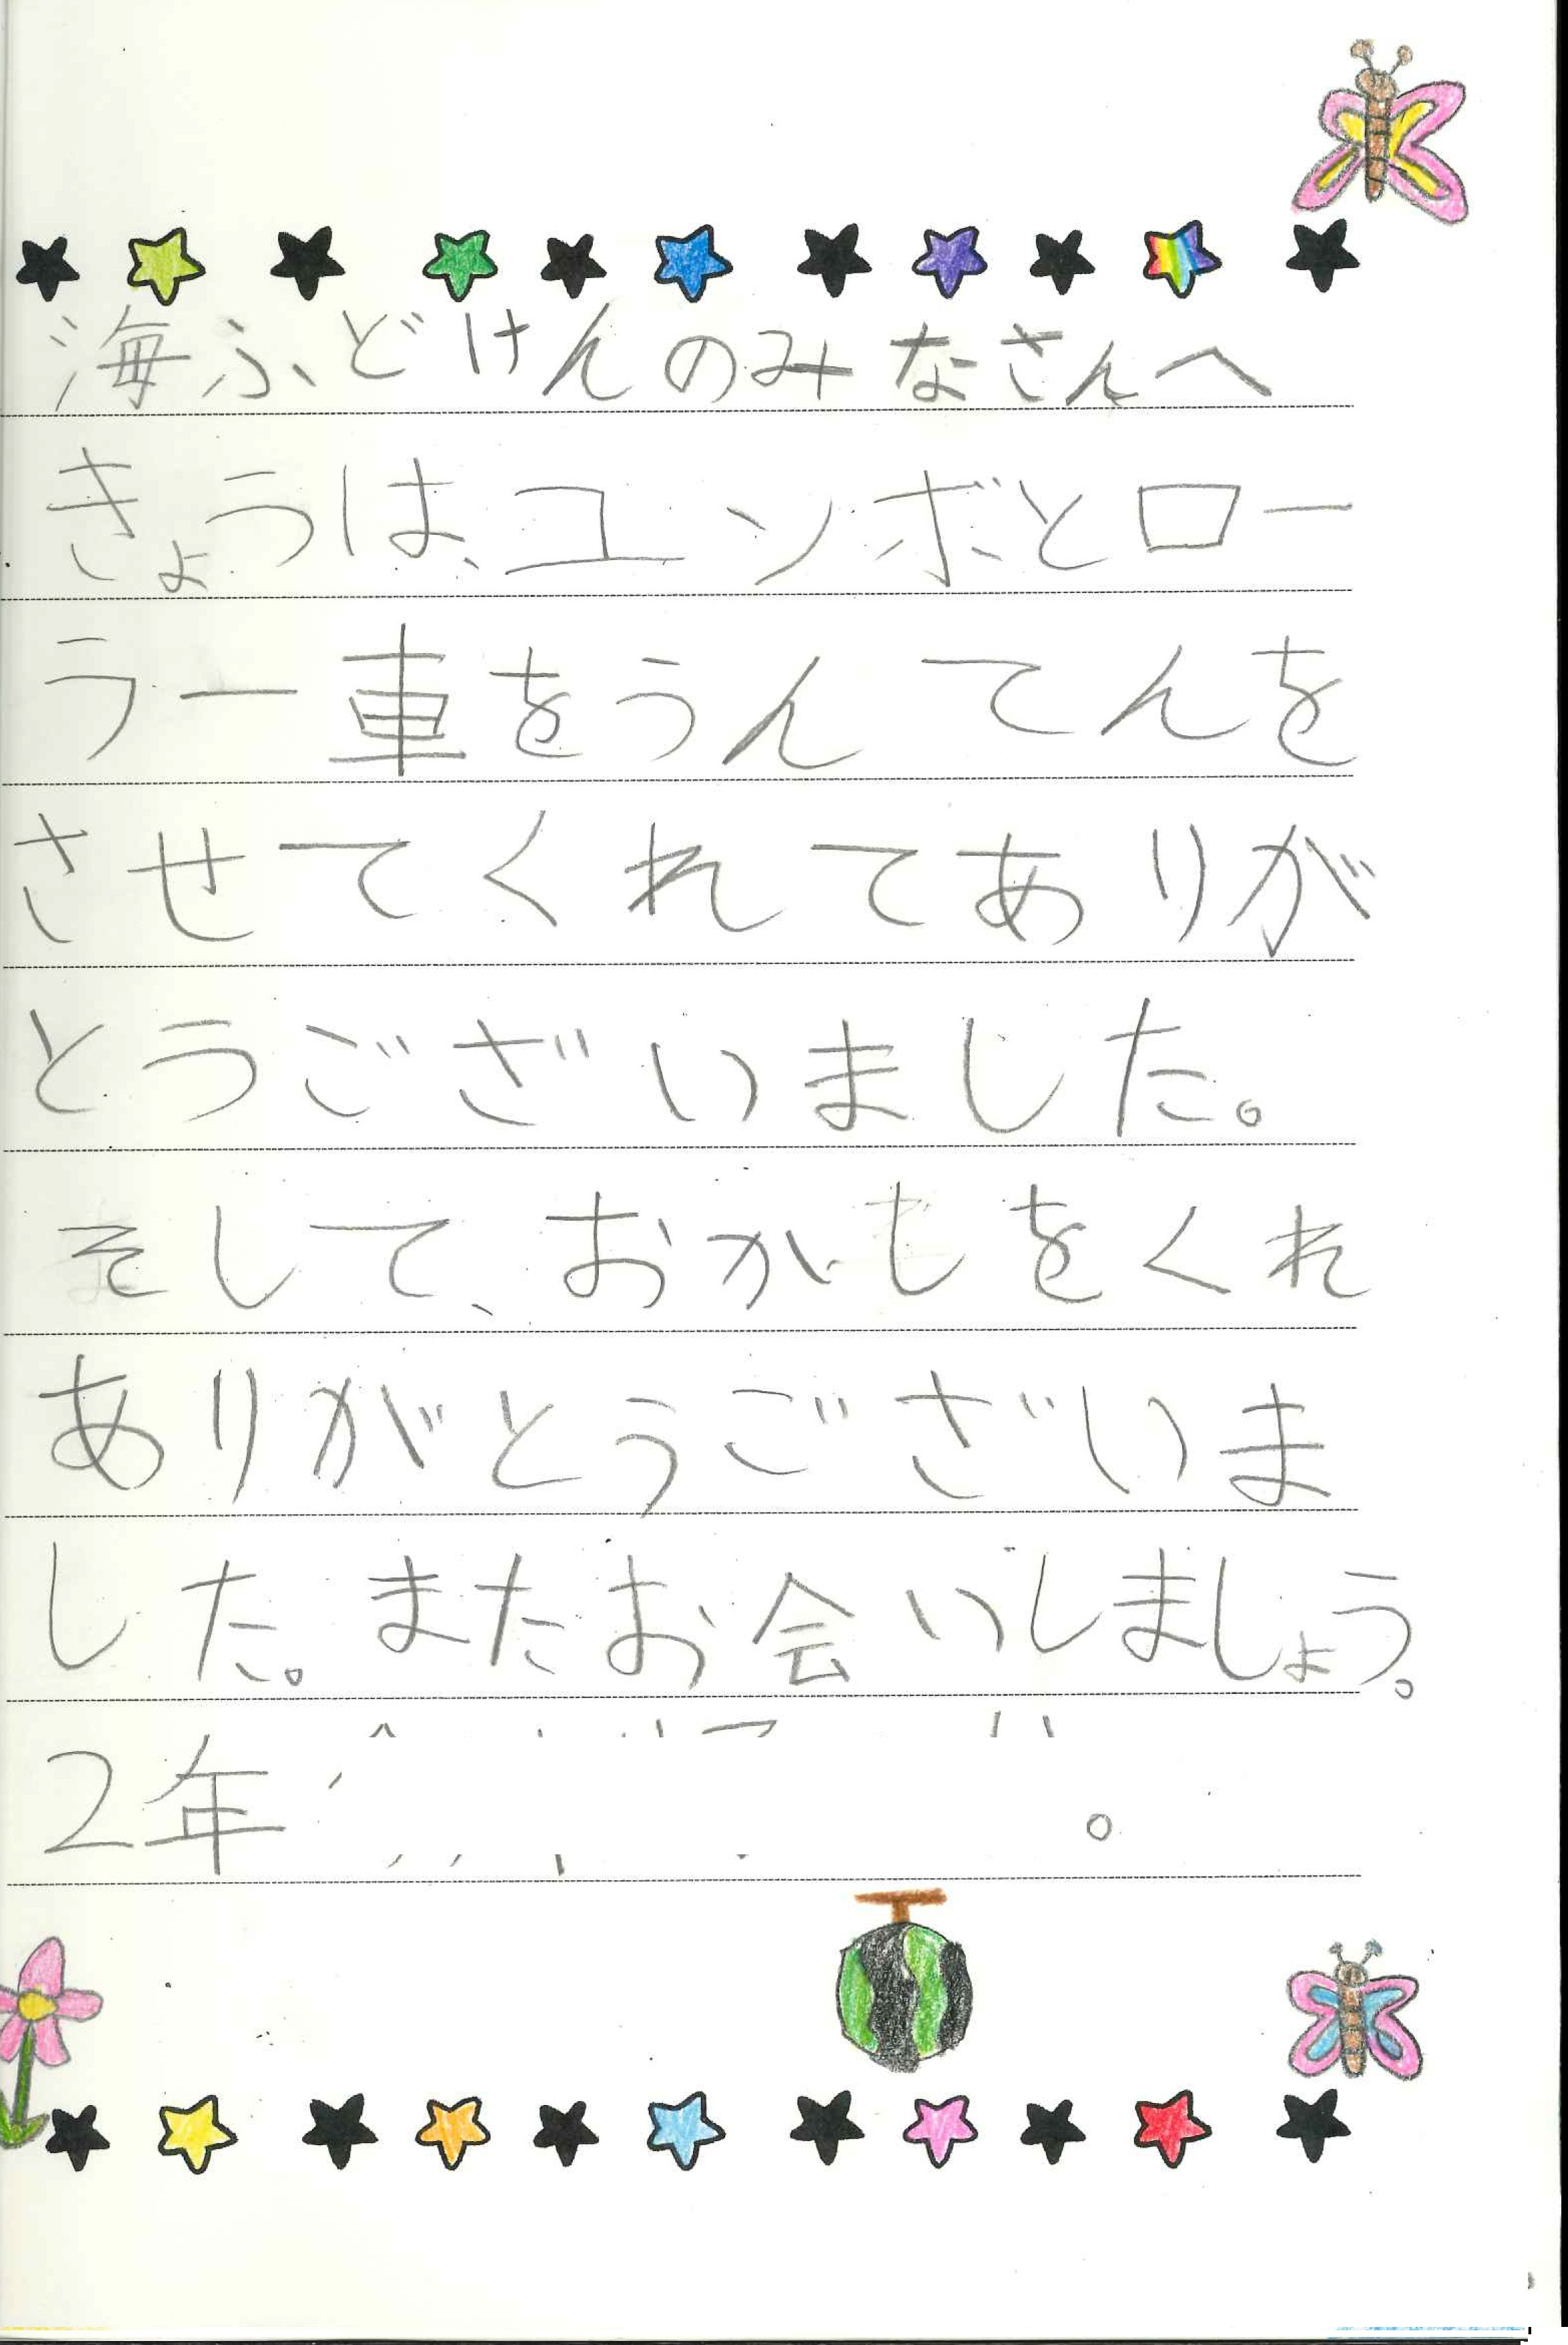 海ふどけんのみなさんへ
きょうは、ユンボとロー
ラー車をうんてんを
させてくれてあリが
とうございました。
そして、おかしをくれ
ありがとうございま
した。またお会いしましょう。
2年